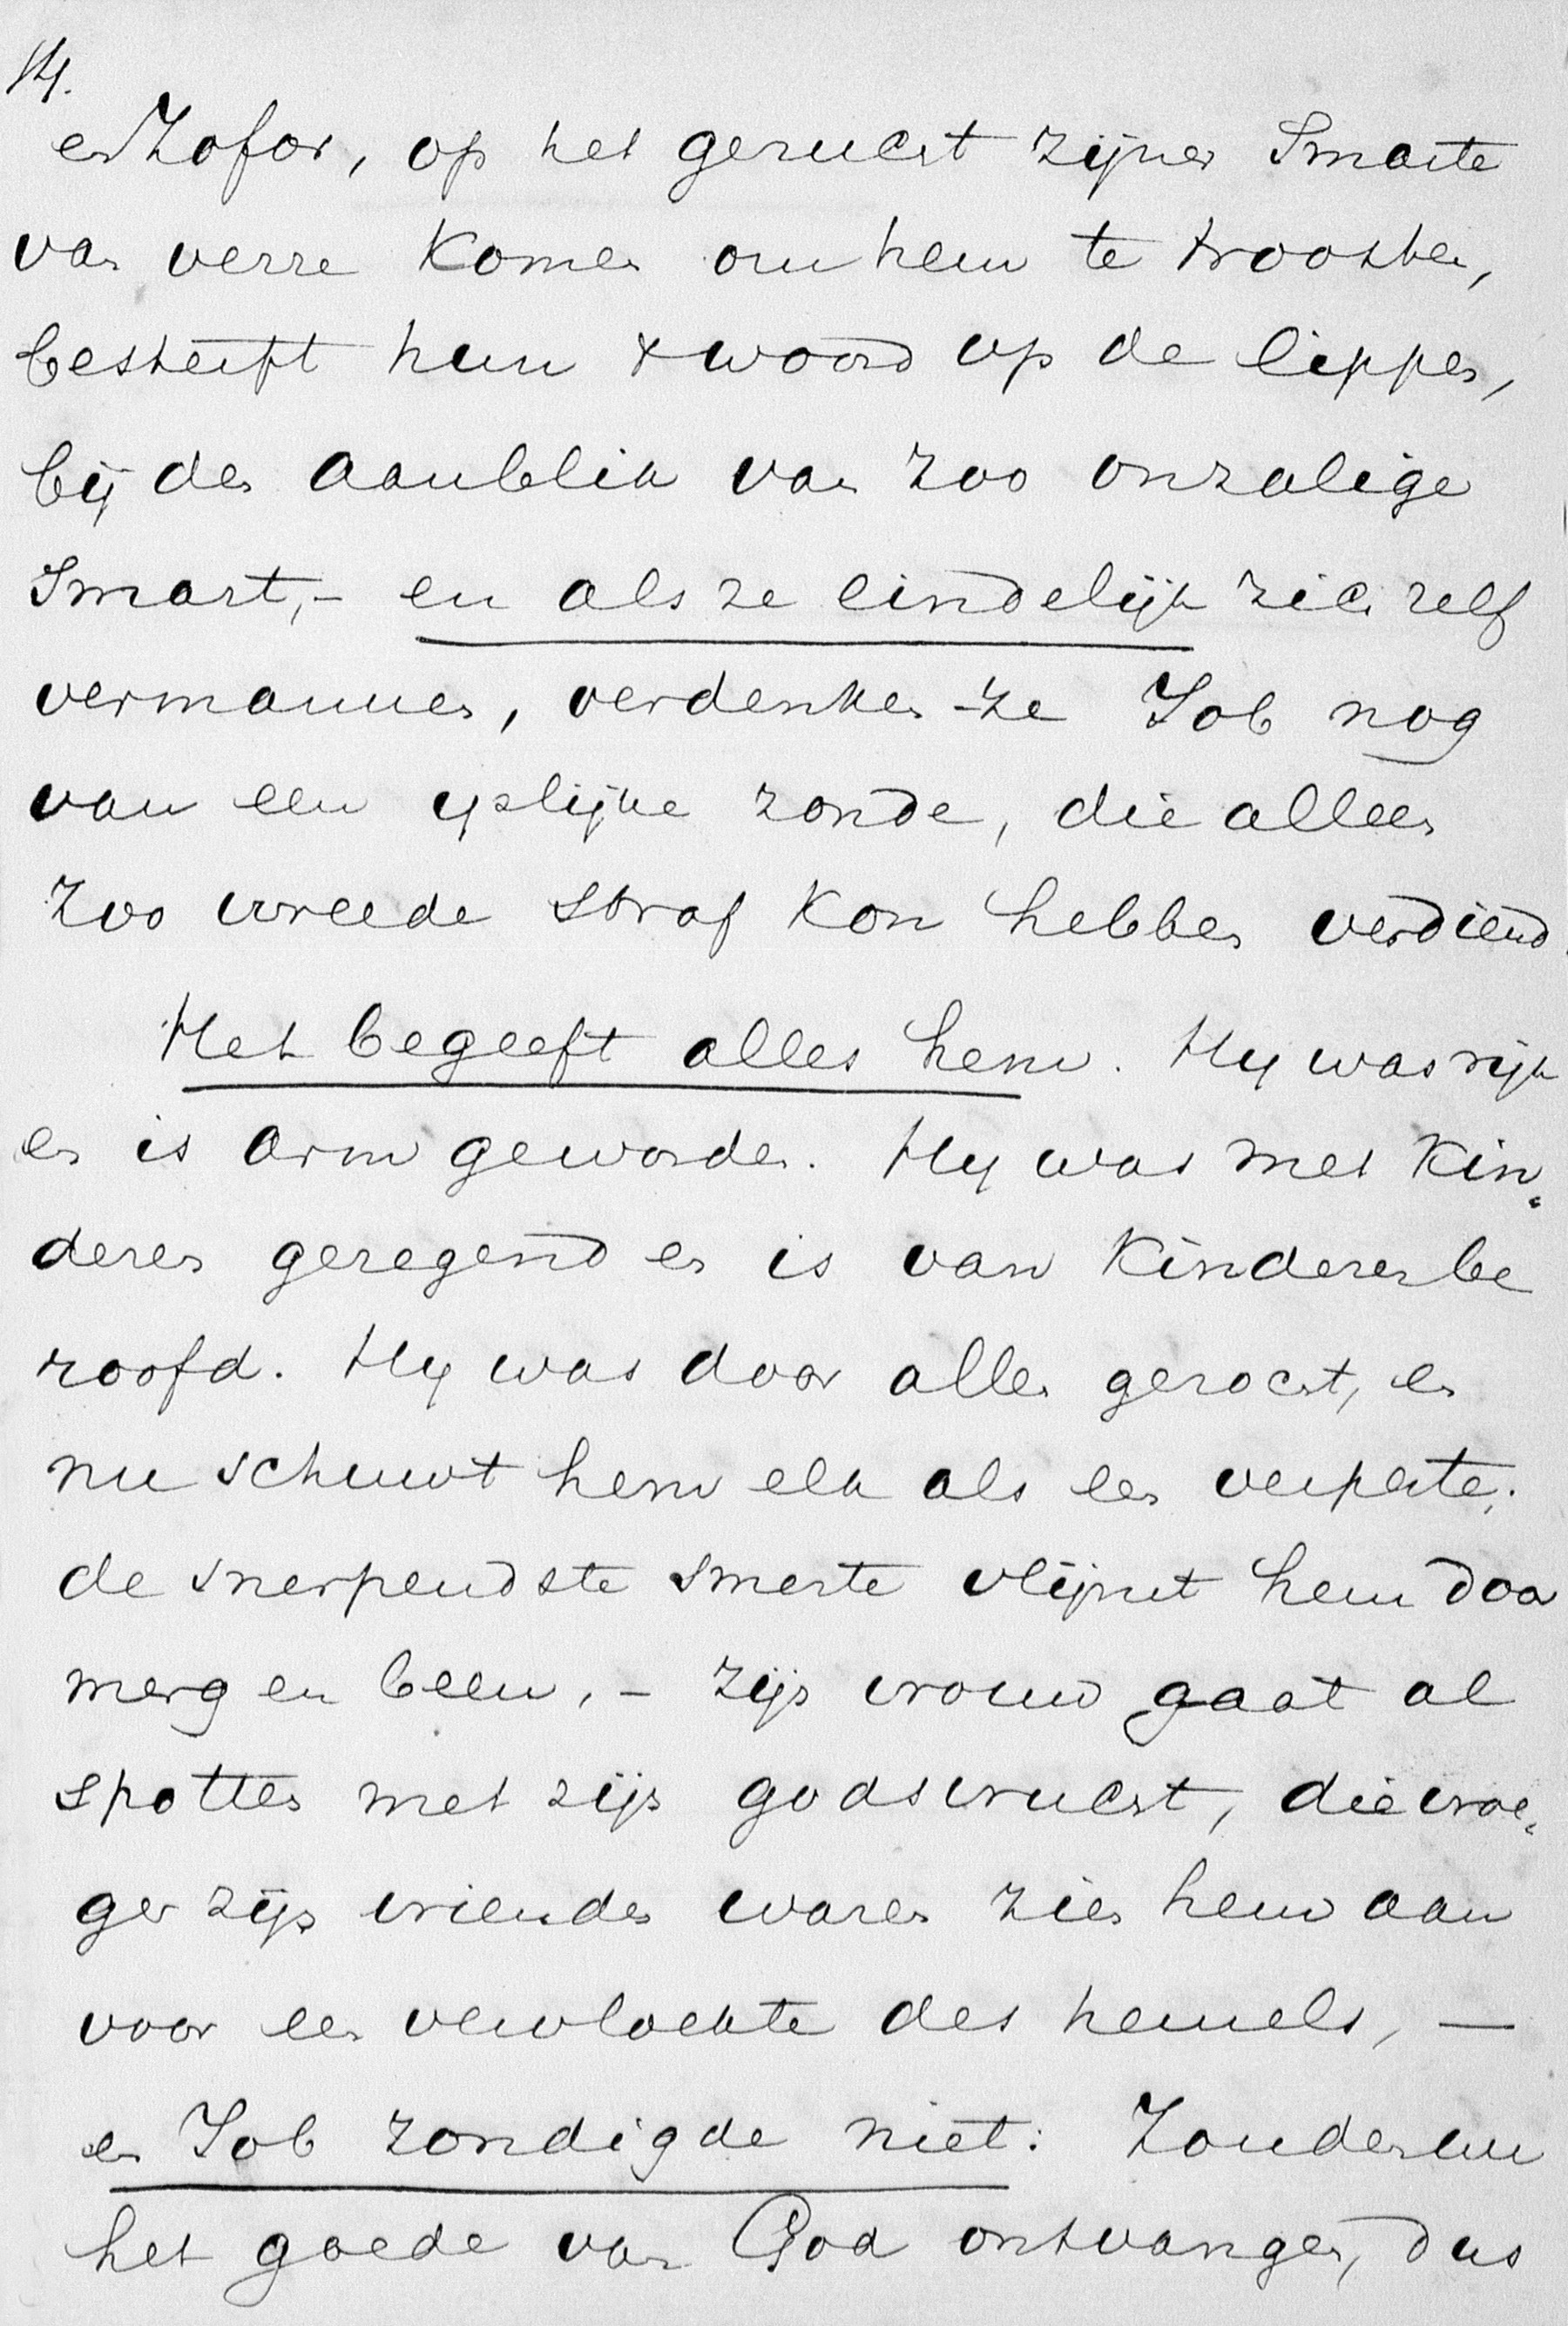 14.
en Zofar, op het gerucht zijner Smarte
van verre komen om hem te troosten,
besterft hun 't woord op de lippen,
bij den aanblik van zoo onzalige
Smart,- en als ze eindelijk zich zelf
vermannen, verdenken ze Job nog
van een ijslijke zonde, die alleen
zoo wreede straf kon hebben verdiend.
Het begeeft alles hem. Hij was rijk
en is arm geworden. Hij was met kin„
deren gezegend en is van kinderen be
roofd. Hij was door allen gezocht, en
nu schuwt hem elk als een verpeste;
de snerpendste smerte vlijmt hem door
merg en been, - zijn vrouw gaat al
spotten met zijn godsvrucht, die vroe„
ger zijn vrienden waren zien hem aan
voor een vervloekte des hemels, —
en Job zondigde niet: Zouden we
het goede van God ontvangen, dus